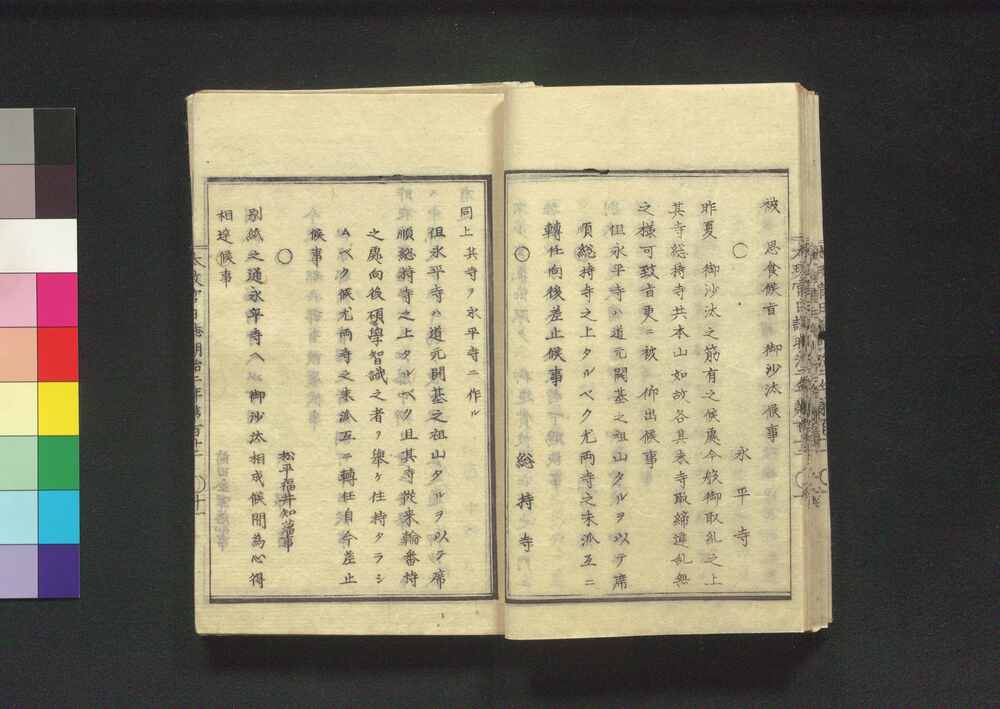 被　思食候旨　御沙汰候事
〇　永平寺
昨夏　御沙汰之筋有之候處今般御取糺之上
其寺総持寺共本山如故各其末寺取締違乱無
之様可致旨更ニ被　仰出候事
但永平寺ハ道元開基之祖山タルヲ以テ席
順総持寺之上タルベク尤両寺之末派互ニ
轉住向後差止候事
〇　総持寺
同上　其寺ヲ永平寺ニ作ル
但永平寺ハ道元開基之祖山タルヲ以テ席
順総持寺之上タルベク且其寺従来輪番持
之處向後碩學智識之者ヲ舉ケ住持タラシ
ムベク候尤両寺之末派互ニ轉住自今差止
候事
〇　松平福井知藩事
別紙之通永平寺ヘ　御沙汰相成候間為心得
相達候事
太政官日誌明治二年第百廿一　〇十一